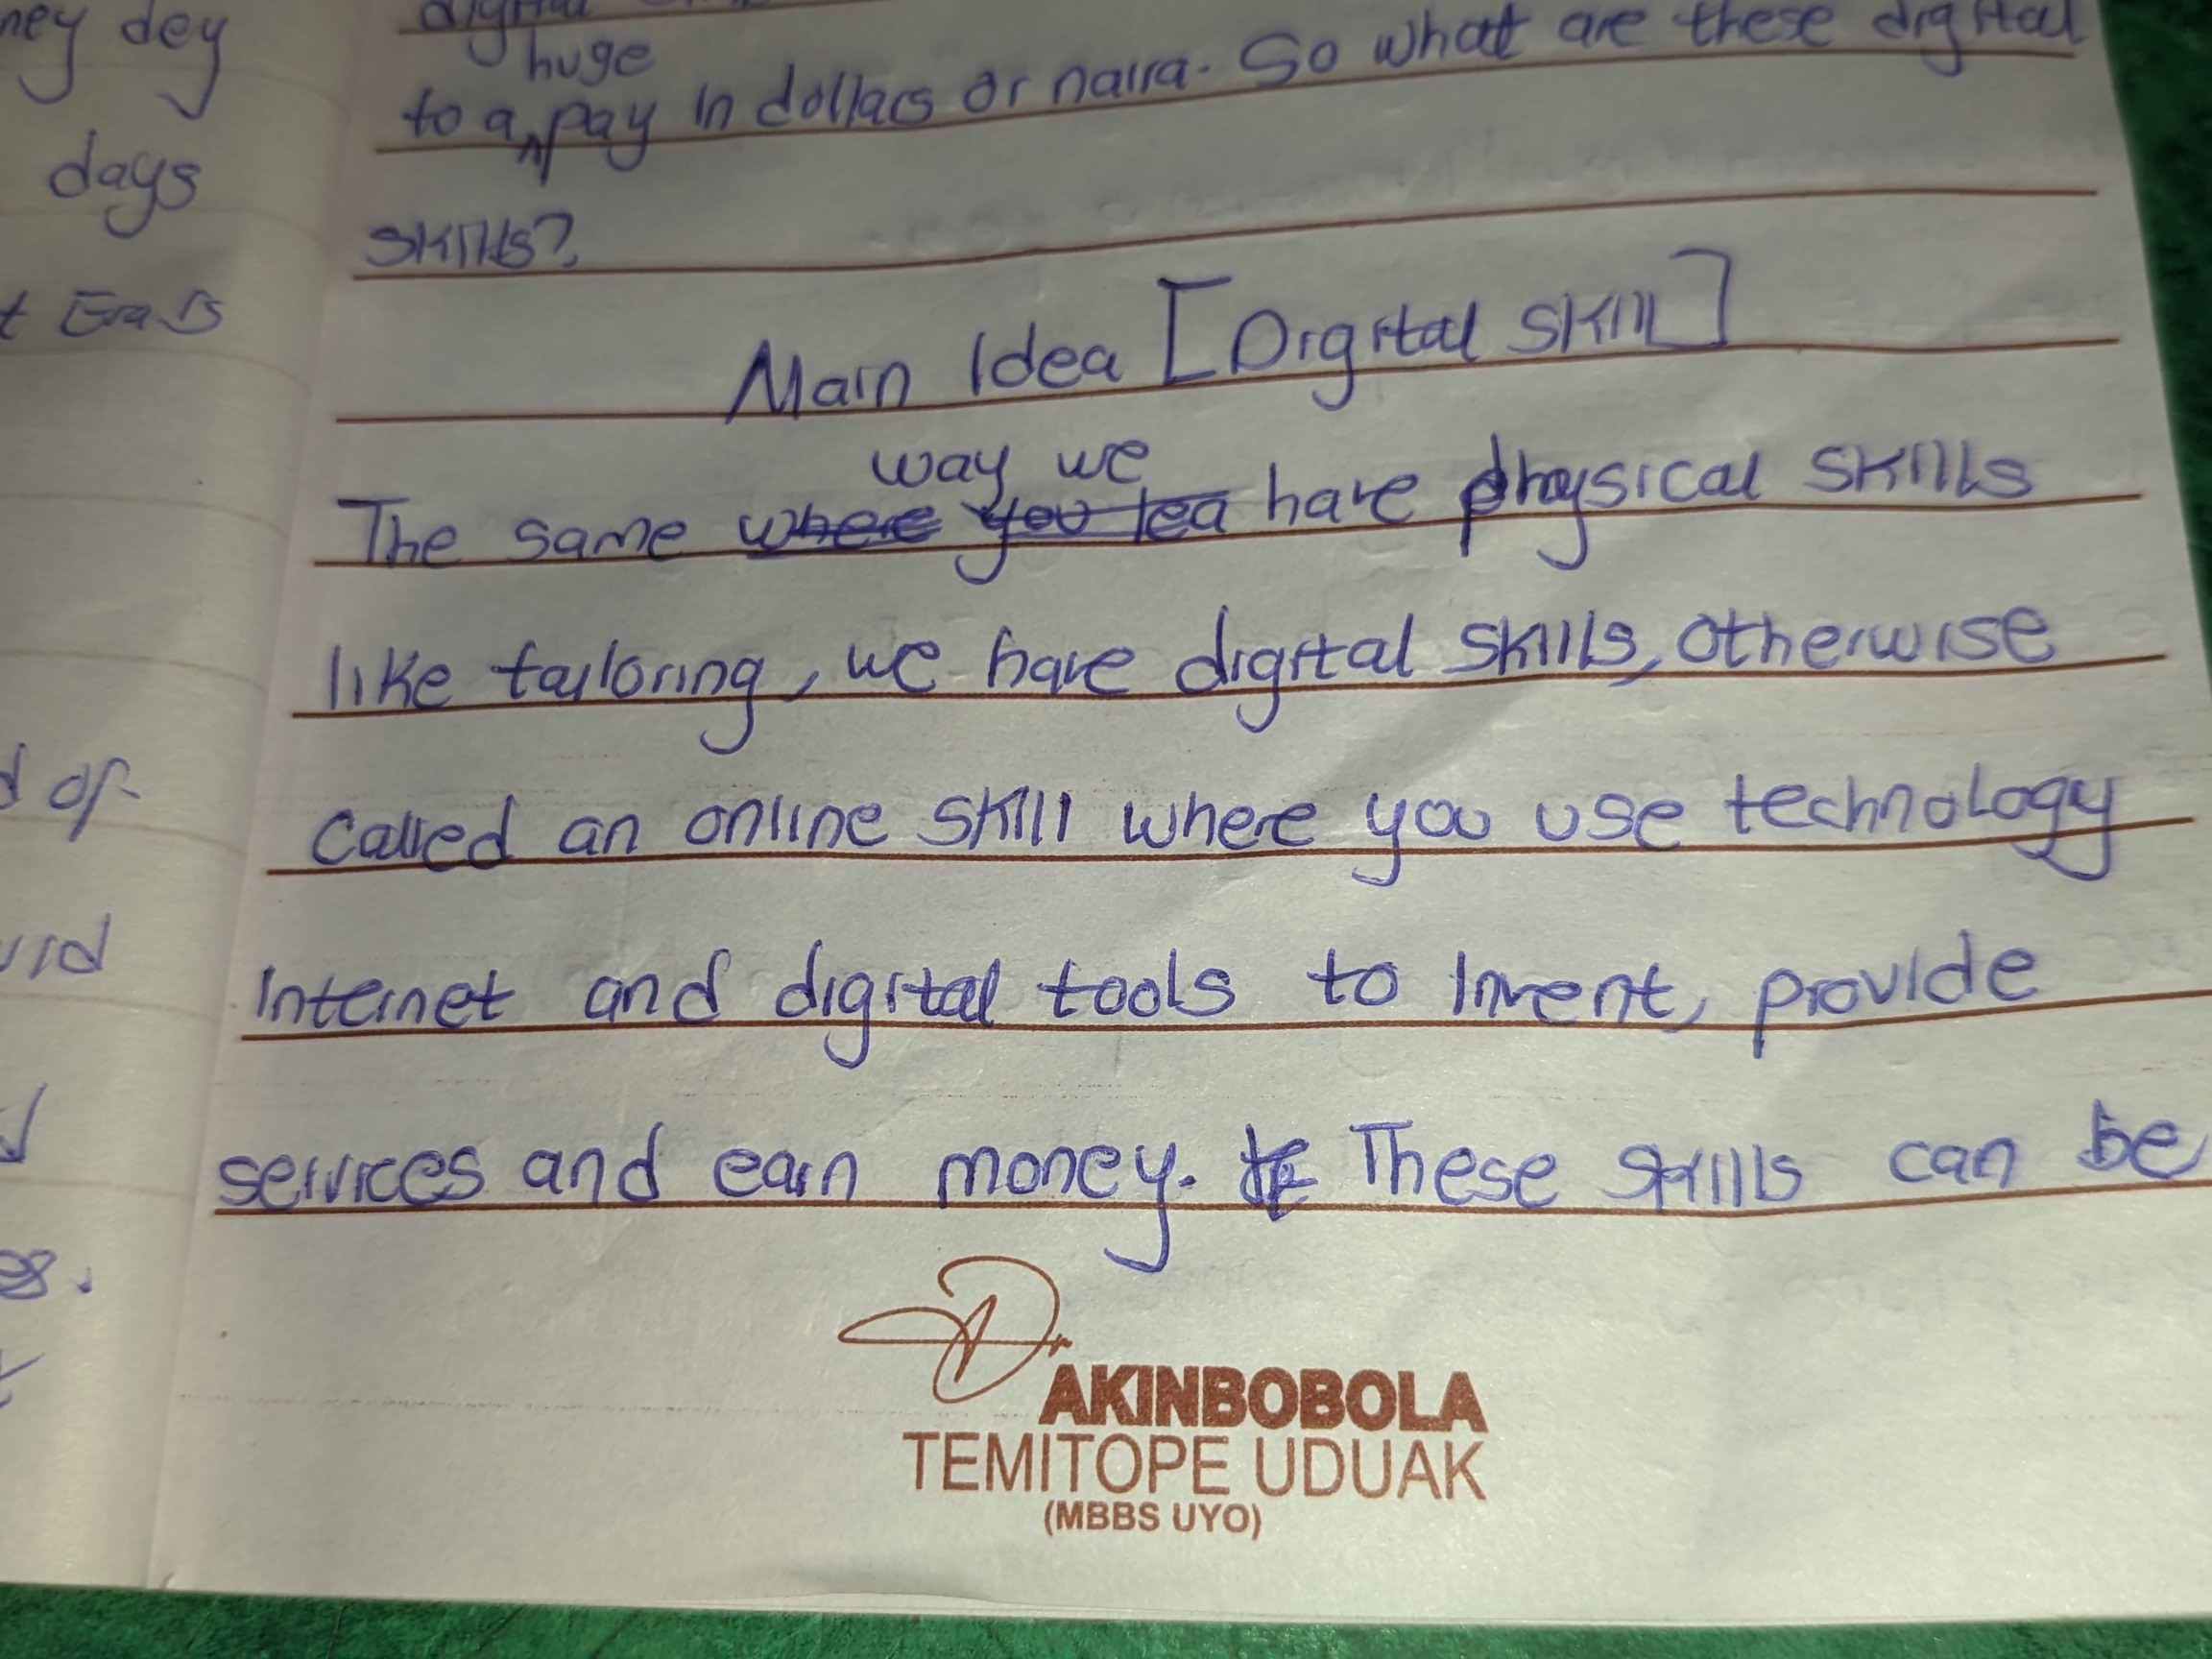 ney dey
days
t Era is
d of
digital
huge
to a pay in dollars or naira. So what are these digital
skills?
Main Idea [Digital Skill]
way we
The same where you lea have physical skills
like tailoring, we have digital skills, otherwise
called an online skill where you use technology
Internet and digital tools to invent, provide
services and earn money. These skills can be
Dr
AKINBOBOLA
TEMITOPE UDUAK
(MBBS UYO)